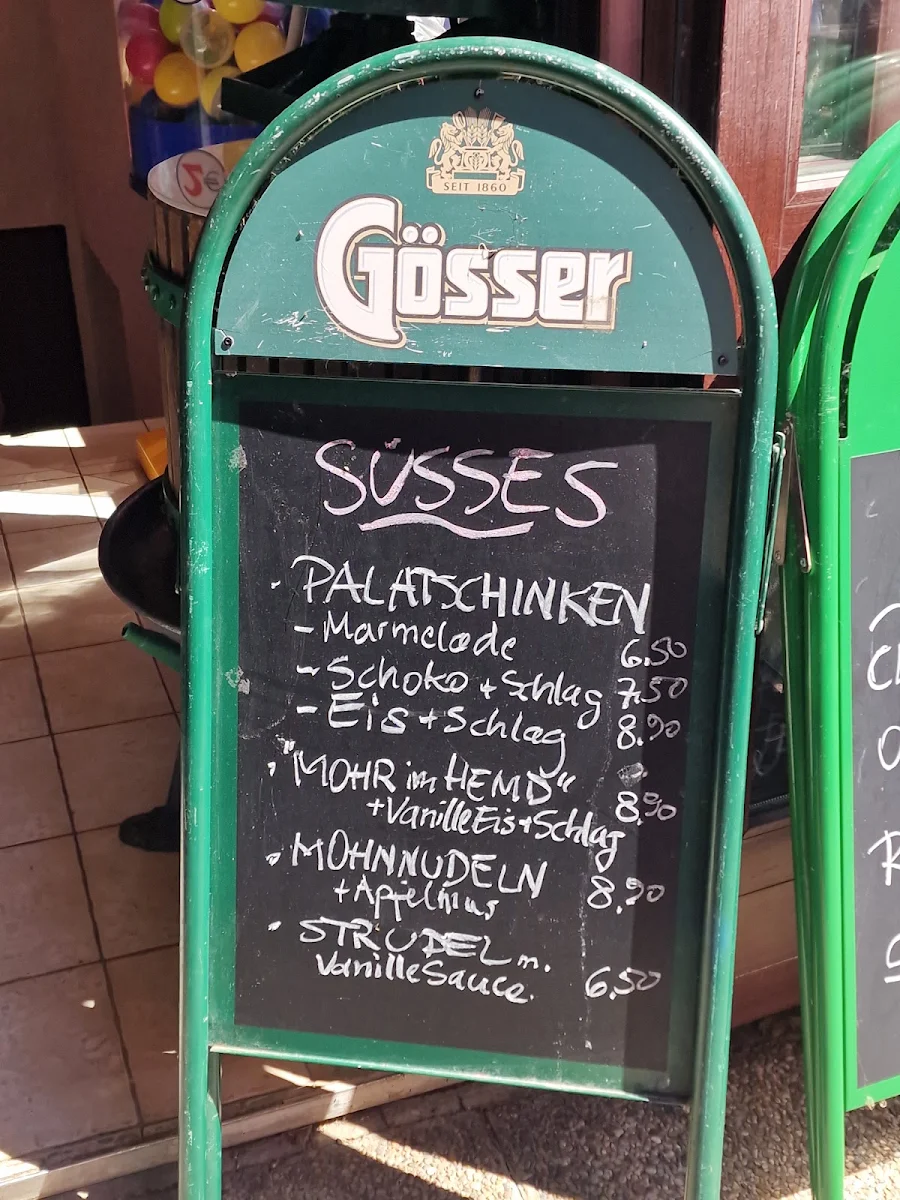 5€
SEIT 1860
Gösser
SÜSSES
• PALATSCHINKEN
- Marmelade 6.50
- Schoko + Schlag 7.50
- Eis + Schlag 8.90
• "MOHR im HEMD"
+ Vanille Eis + Schlag 8.90
• MOHNNUDELN
+ Apfelmus 8.90
• STRUDEL m.
Vanille Sauce. 6.50